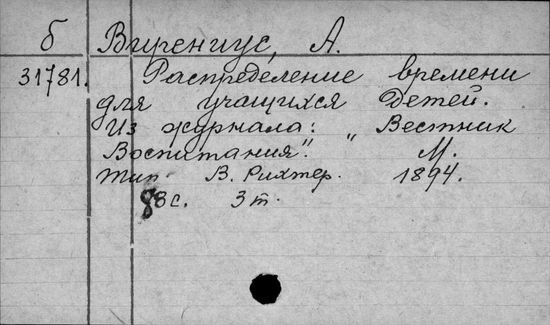 б Вирениус, А.
31781. Распределение времени
для учащихся детей.
Из журнала: "Вестник
Воспитания". М.
Тип. В. Рихтер. 1894.
88 с. 3 т.